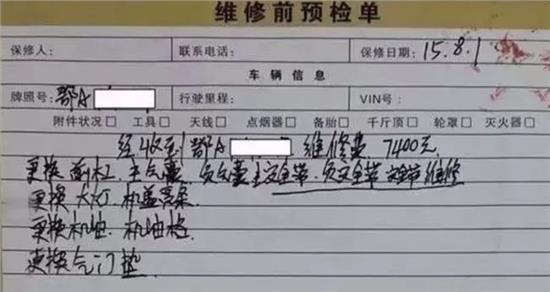 维修前预检单
保修人： 联系电话： 保修日期：15.8.1
车辆信息
牌照号：鄂A 行驶里程： VIN号：
附件状况□ 工具□ 天线□ 点烟器□ 备胎□ 千斤顶□ 轮罩□ 灭火器□
经收到鄂A 维修费 7400元
更换前杠、主气囊 负气囊主安全带、负安全带 维修
更换大灯、机盖
更换机油、机油格
更换气门垫